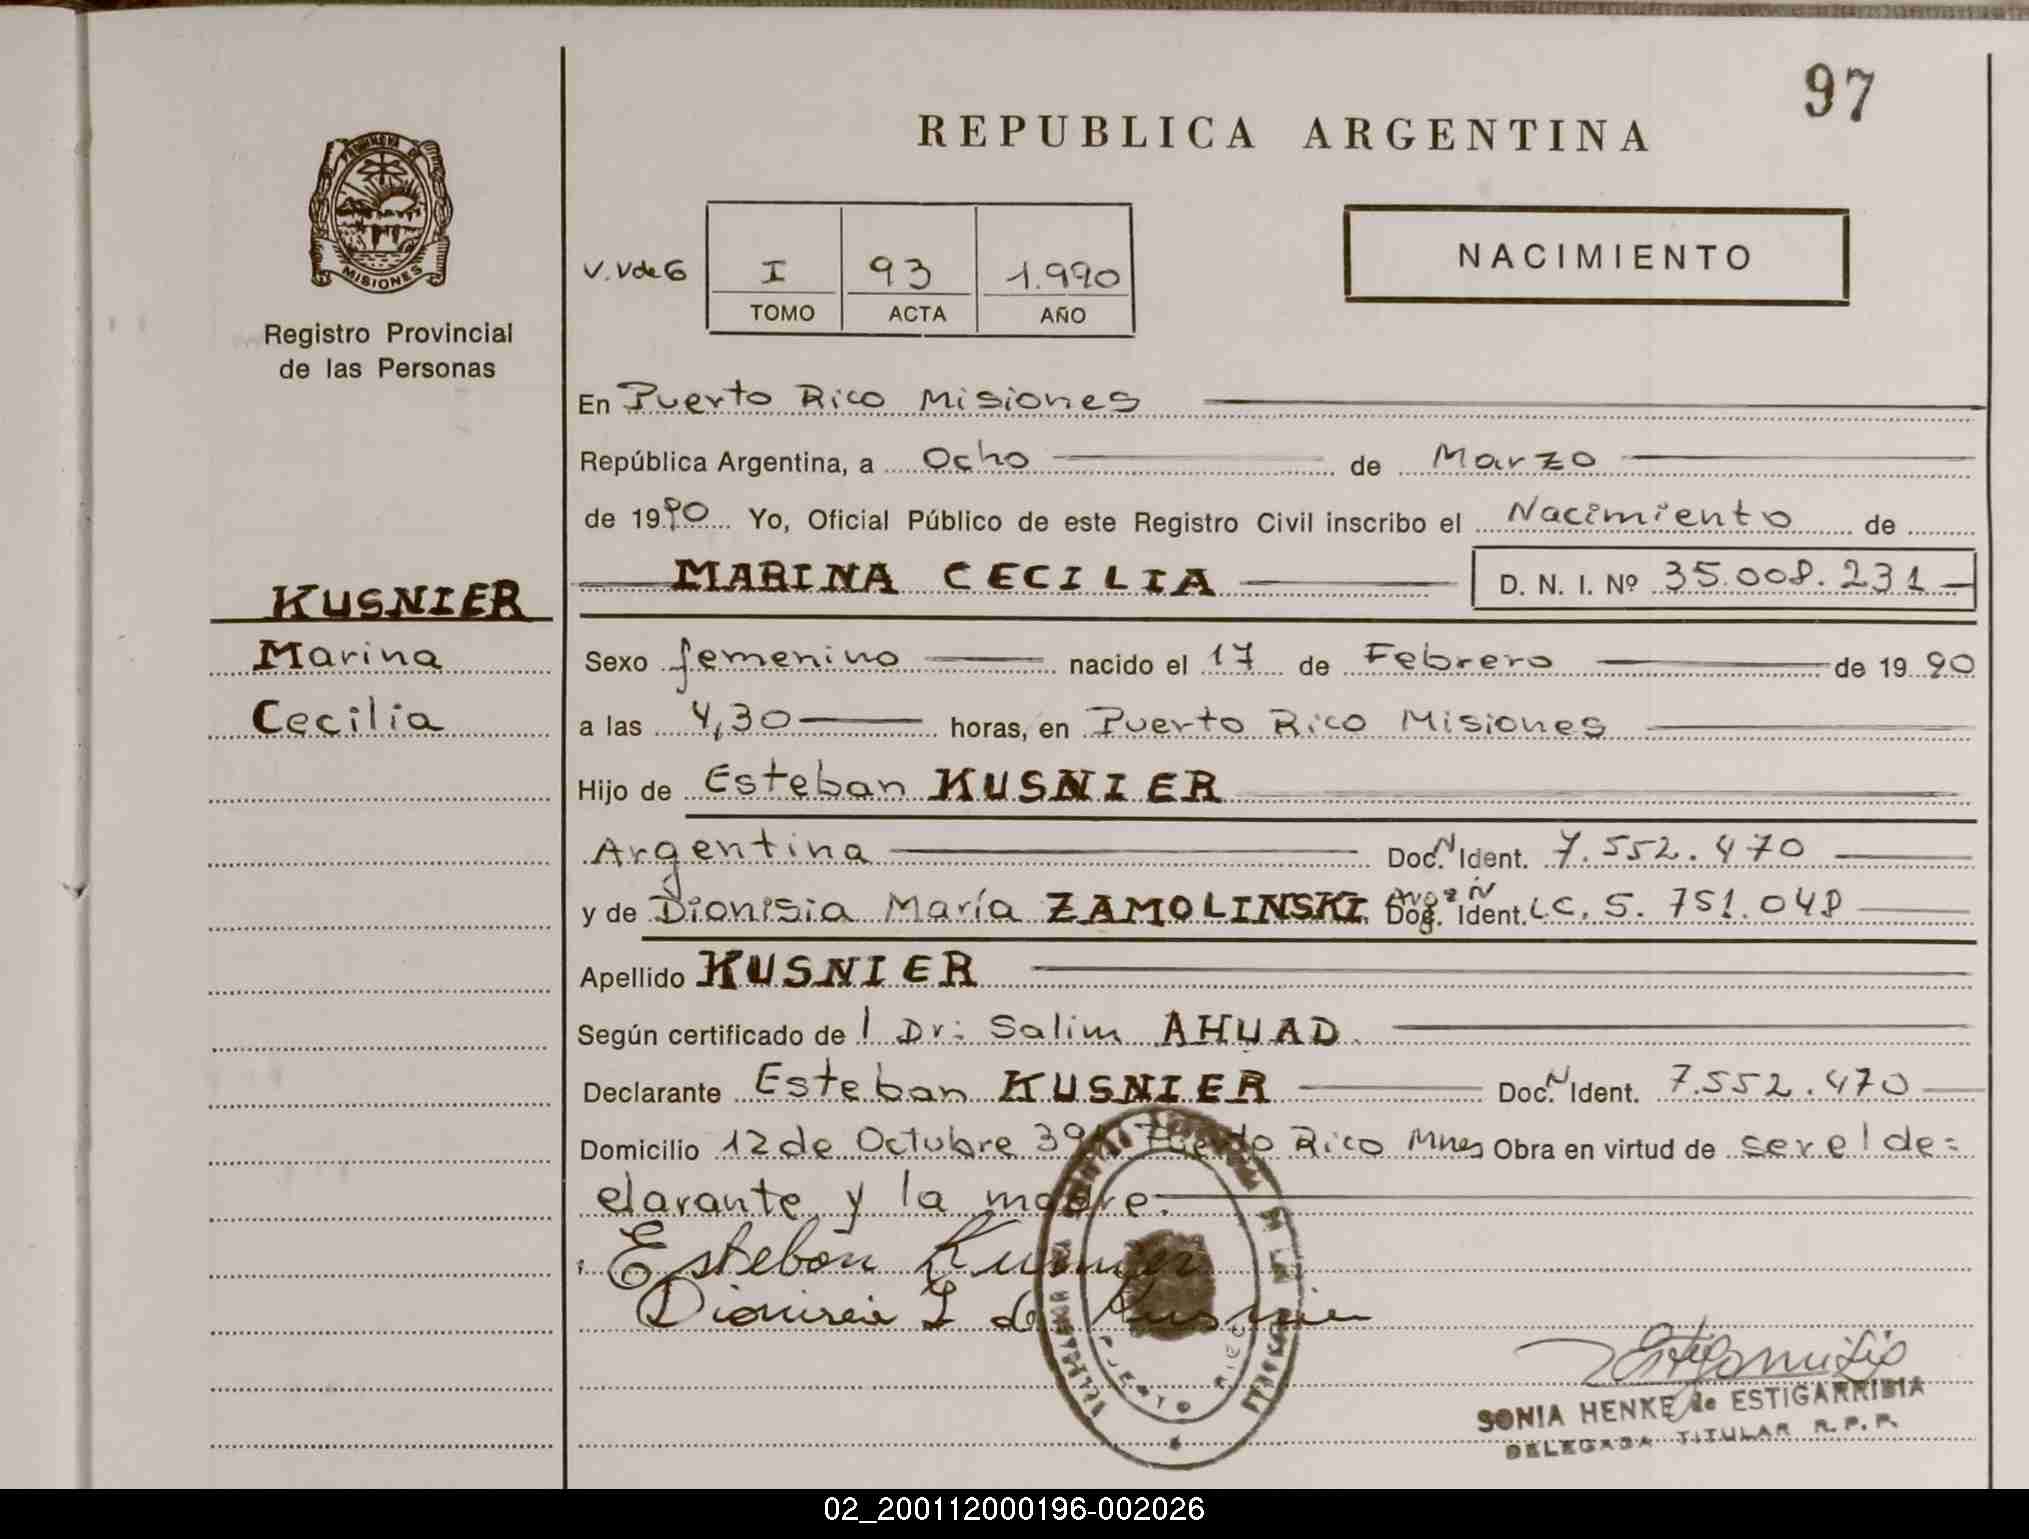 97
REPUBLICA ARGENTINA
PROVINCIA DE
MISIONES
Registro Provincial
de las Personas
V. V de G
I 93 1.990
TOMO ACTA AÑO
NACIMIENTO
En Puerto Rico Misiones
República Argentina, a Ocho de Marzo
de 1990 Yo, Oficial Público de este Registro Civil inscribo el Nacimiento de
MARINA CECILIA D. N. I. Nº 35.008.231
KUSNIER
Marina
Cecilia
Sexo femenino nacido el 17 de Febrero de 1990
a las 4,30 horas, en Puerto Rico Misiones
Hijo de Esteban KUSNIER
Argentina Doc. N Ident. 7.552.470
y de Dionisia María ZAMOLINSKI Arg. Doc. N Ident. L.C. 5.751.048
Apellido KUSNIER
Según certificado de l Dr: Salim AHUAD
Declarante Esteban KUSNIER Doc. N Ident. 7.552.470
Domicilio 12 de Octubre Puerto Rico Mnes Obra en virtud de ser el de=
clarante y la madre.
Esteban Kusnier
Dionisia Z de Kusnier
PUERTO RICO
SONIA HENKE de ESTIGARRIBIA
DELEGADA TITULAR R. P. P.
02_200112000196-002026